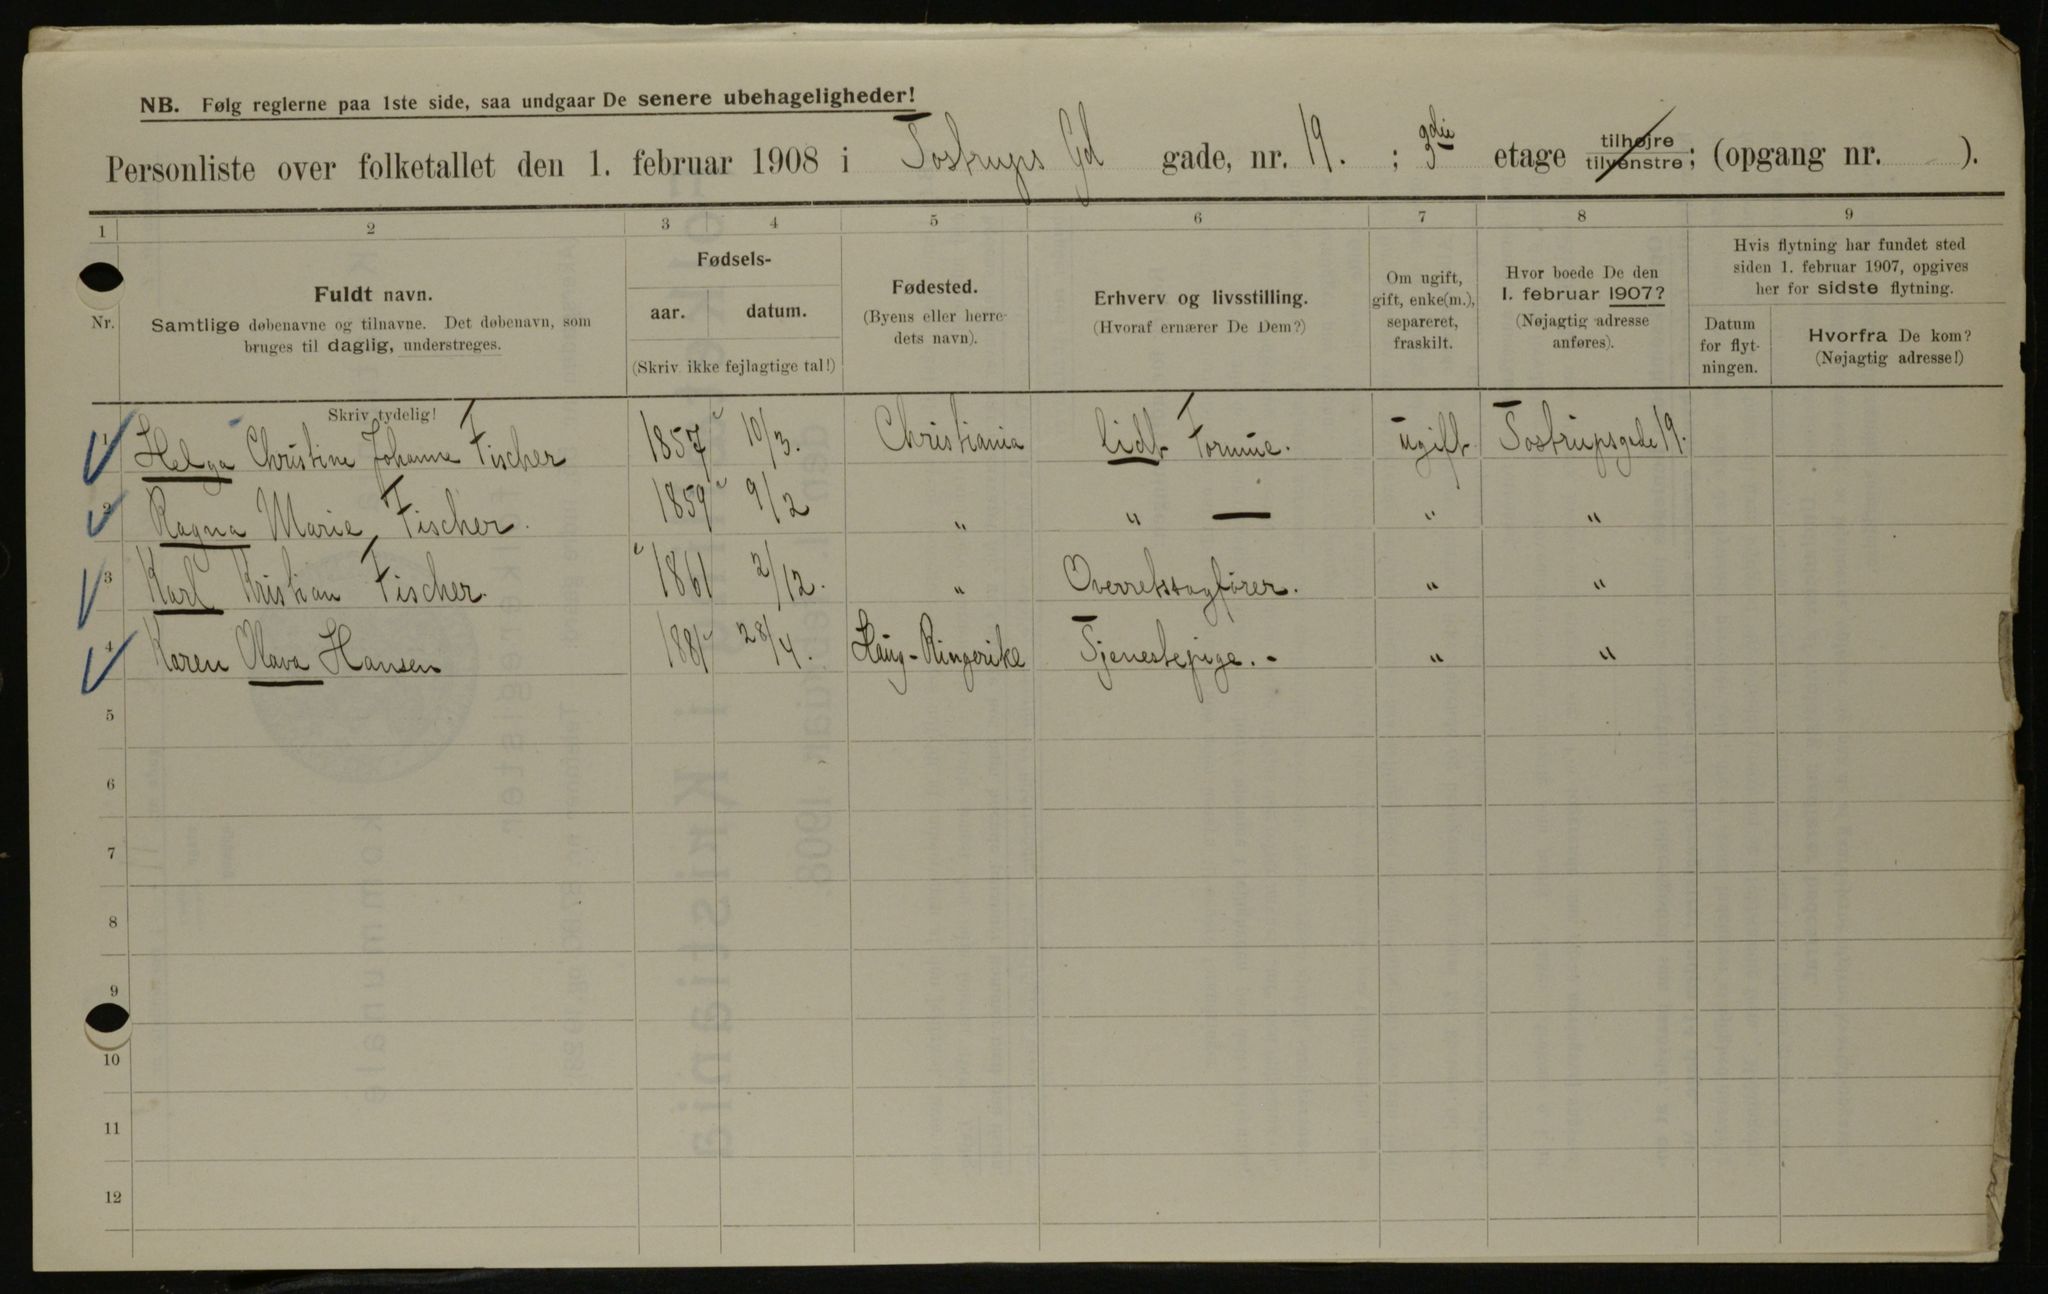 NB. Følg reglerne paa 1ste side, saa undgaar De senere ubehageligheder!
Personliste over folketallet den 1. februar 1908 i Tostrups Gd gade, nr. 19. ; 3die etage tilhøjre tilvenstre; (opgang nr. ).
1 2 3 4 5 6 7 8 9
Nr.
Fuldt navn.
Samtlige døbenavne og tilnavne. Det døbenavn, som
bruges til daglig, understreges.
Fødsels-
aar. datum.
(Skriv ikke fejlagtige tal!)
Fødested.
(Byens eller herre-
dets navn).
Erhverv og livsstilling.
(Hvoraf ernærer De Dem?)
Om ugift,
gift, enke(m.),
separeret,
fraskilt.
Hvor boede De den
1. februar 1907?
(Nøjagtig adresse
anføres).
Hvis flytning har fundet sted
siden 1. februar 1907, opgives
her for sidste flytning.
Datum
for flyt-
ningen.
Hvorfra De kom?
(Nøjagtig adresse!)
Skriv tydelig!
1 Helga Christine Johanne Fischer 1857 10/3. Christiania lidt Formue. ugift Tostrupsgade 19.
2 Ragna Marie Fischer. 1859 9/2 " " — " "
3 Karl Kristian Fischer. 1861 2/12. " Overretssagfører. " "
4 Karen Olava Hansen 1881 28/4. Haug-Ringerike Tjenestepige. - " "
5
6
7
8
9
10
11
12